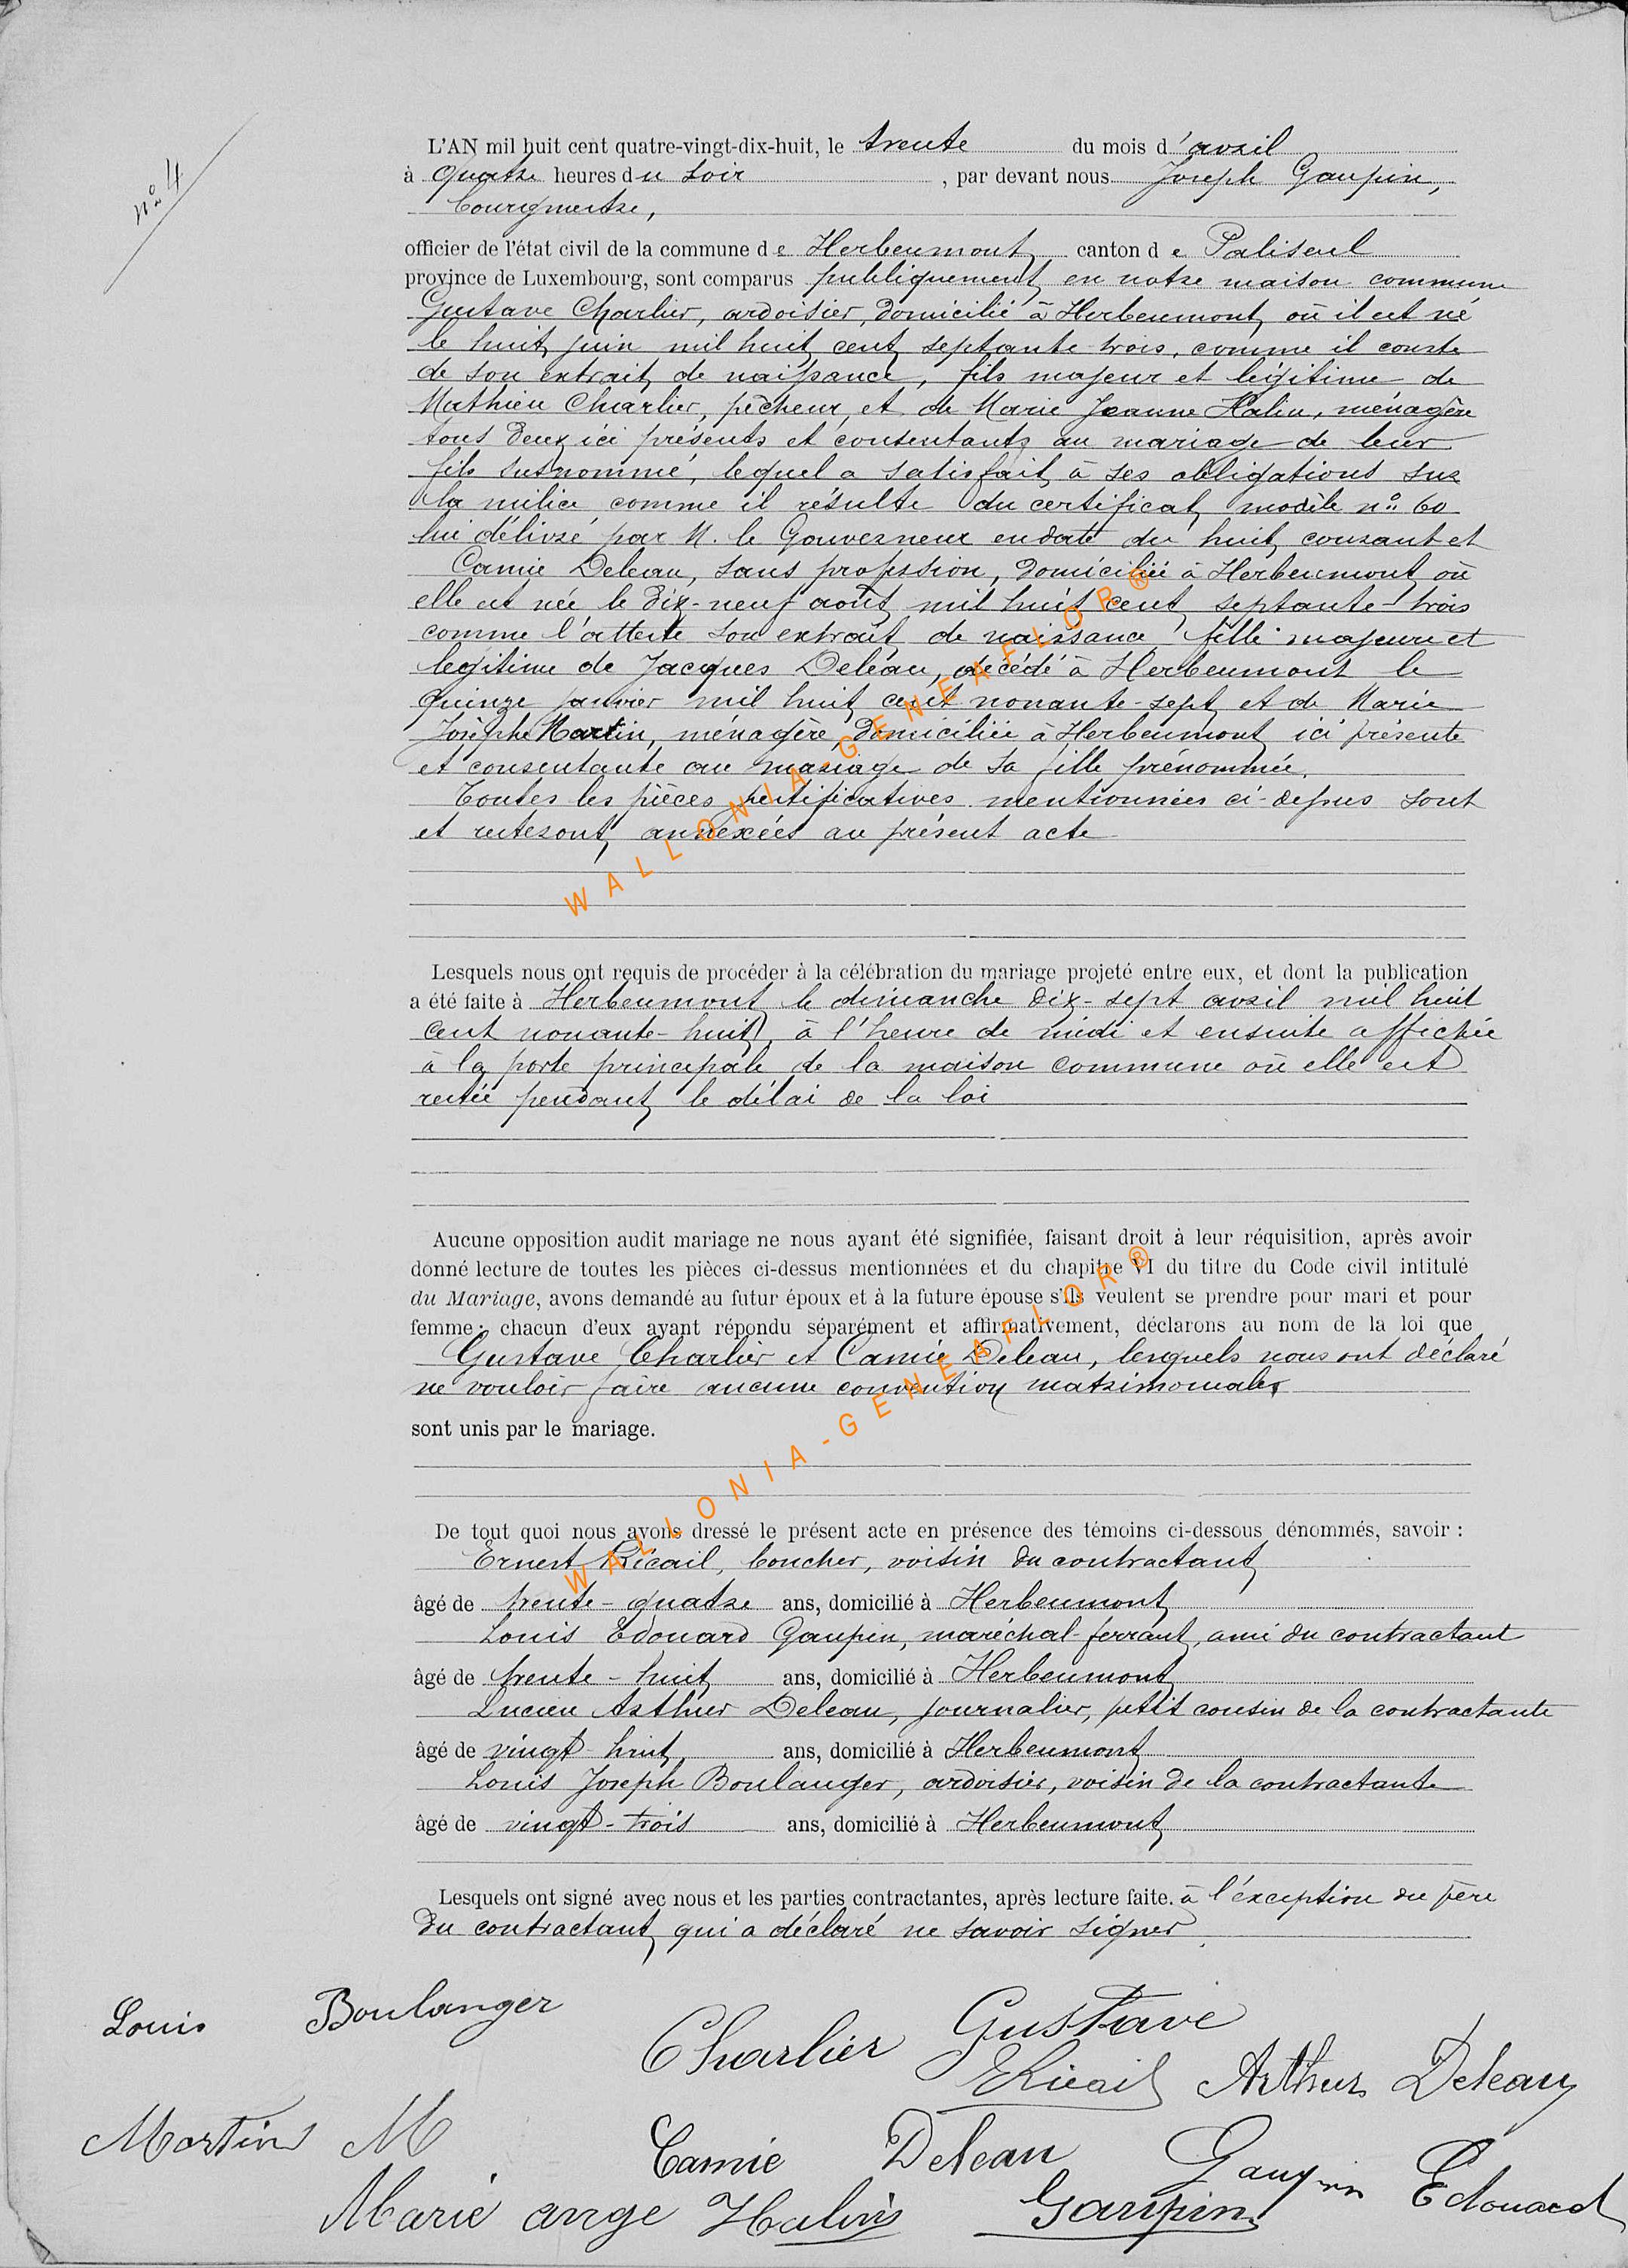 n° 4
L'AN mil huit cent quatre-vingt-dix-huit, le trente du mois d'avril
à quatre heures du soir, par devant nous Joseph Gaupin,
bourgmestre,
officier de l'état civil de la commune de Herbeumont canton de Paliseul
province de Luxembourg, sont comparus publiquement en notre maison commune
Gustave Charlier, ardoisier, domicilié à Herbeumont où il est né
le huit juin mil huit cent septante-trois, comme il conste
de son extrait de naissance, fils majeur et légitime de
Mathieu Charlier, pêcheur, et de Marie Jeanne Halin, ménagère
tous deux ici présents et consentants au mariage de leur
fils susnommé, lequel a satisfait à ses obligations sur
la milice comme il résulte du certificat modèle n° 60
lui délivré par M. le Gouverneur en date du huit courant et
Camie Deleau, sans profession, domiciliée à Herbeumont où
elle est née le dix-neuf août mil huit cent septante-trois
comme l'atteste son extrait de naissance fille majeure et
legitime de Jacques Deleau, décédé à Herbeumont le
quinze janvier mil huit cent nonante-sept et de Marie
Josèphe Martin, ménagère, domiciliée à Herbeumont ici présente
et consentante au mariage de sa fille prénommée.
Toutes les pièces justificatives mentionnées ci-dessus sont
et resteront annexées au présent acte
WALLONIA-GENEAFLOR®
Lesquels nous ont requis de procéder à la célébration du mariage projeté entre eux, et dont la publication
a été faite à Herbeumont le dimanche dix-sept avril mil huit
cent nonante-huit, à l'heure de midi et ensuite affichée
à la porte principale de la maison commune où elle est
restée pendant le délai de la loi
Aucune opposition audit mariage ne nous ayant été signifiée, faisant droit à leur réquisition, après avoir
donné lecture de toutes les pièces ci-dessus mentionnées et du chapitre VI du titre du Code civil intitulé
du Mariage, avons demandé au futur époux et à la future épouse s'ils veulent se prendre pour mari et pour
femme; chacun d'eux ayant répondu séparément et affirmativement, déclarons au nom de la loi que
Gustave Charlier et Camie Deleau, lesquels nous ont déclaré
ne vouloir faire aucune convention matrimoniale,
sont unis par le mariage.
WALLONIA-GENEAFLOR®
De tout quoi nous avons dressé le présent acte en présence des témoins ci-dessous dénommés, savoir :
Ernest Ricail, boucher, voisin du contractant
âgé de trente-quatre ans, domicilié à Herbeumont
Louis Edouard Gaupin, maréchal-ferrant, ami du contractant
âgé de trente-huit ans, domicilié à Herbeumont
Lucien Arthur Deleau, journalier, petit cousin de la contractante
âgé de vingt-huit ans, domicilié à Herbeumont
Louis Joseph Boulanger, ardoisier, voisin de la contractante
âgé de vingt-trois ans, domicilié à Herbeumont
Lesquels ont signé avec nous et les parties contractantes, après lecture faite. à l'exception du père
du contractant qui a déclaré ne savoir signer
Louis Boulanger
Charlier Gustave
ERicail Arthur Deleau
Martin M
Camie Deleau
Gaupin Edouard
Marie ange Halin
Gaupin